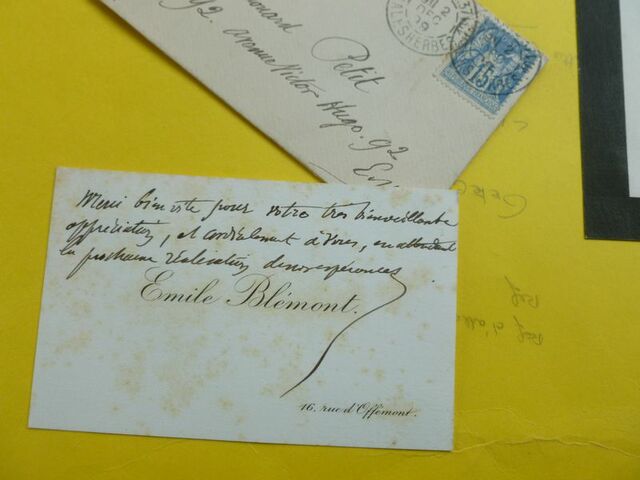 Edouard Petit
92. avenue Victor Hugo. 92
MALESHERBES
DEC
15
Merci bien vite pour votre très bienveillante
appréciation, et cordialement à vous, en attendant
la prochaine réalisation de nos espérances
Emile Blémont.
16. rue d'Offémont.
Réf